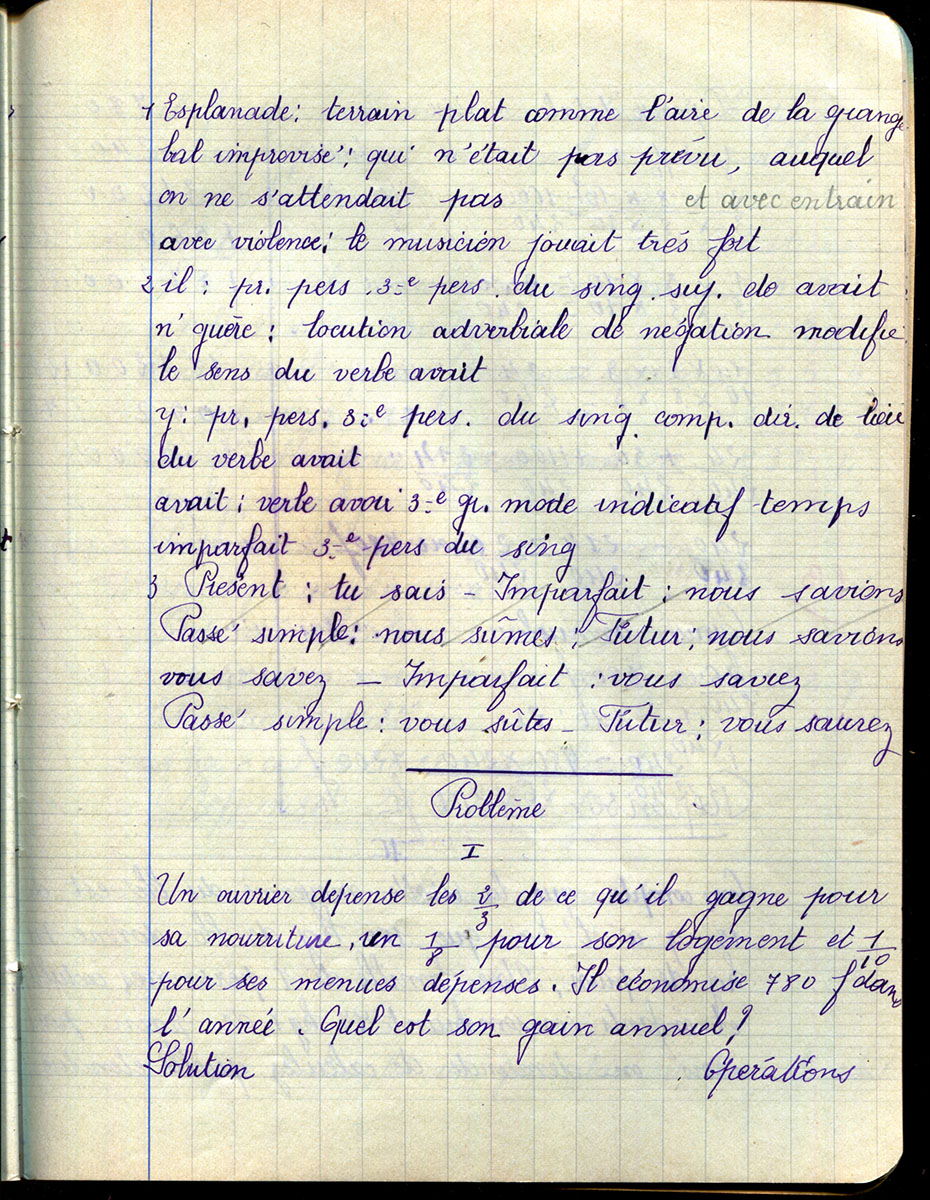 1 Esplanade: terrain plat comme l'aire de la grange
bal improvisé: qui n'était pas prévu, auquel
on ne s'attendait pas et avec entrain
avec violence: le musicien jouait très fort
2 il: pr. pers. 3=e pers. du sing. suj. de avait
n'guère: locution adverbiale de négation modifie
le sens du verbe avait
y: pr. pers. 3=e pers. du sing. comp. dir. de lieu
du verbe avait
avait: verbe avoir 3=e gr. mode indicatif temps
imparfait 3=e pers du sing
3 Présent: tu sais - Imparfait: nous savions
Passé simple: nous sûmes; Futur: nous savions
vous savez - Imparfait: vous saviez
Passé simple: vous sûtes - Futur: vous saurez
Problème
I
Un ouvrier dépense les 2/3 de ce qu'il gagne pour
sa nourriture, un 1/8 pour son logement et 1/10
pour ses menues dépenses. Il économise 780 f dans
l'année. Quel est son gain annuel?
Solution Opérations